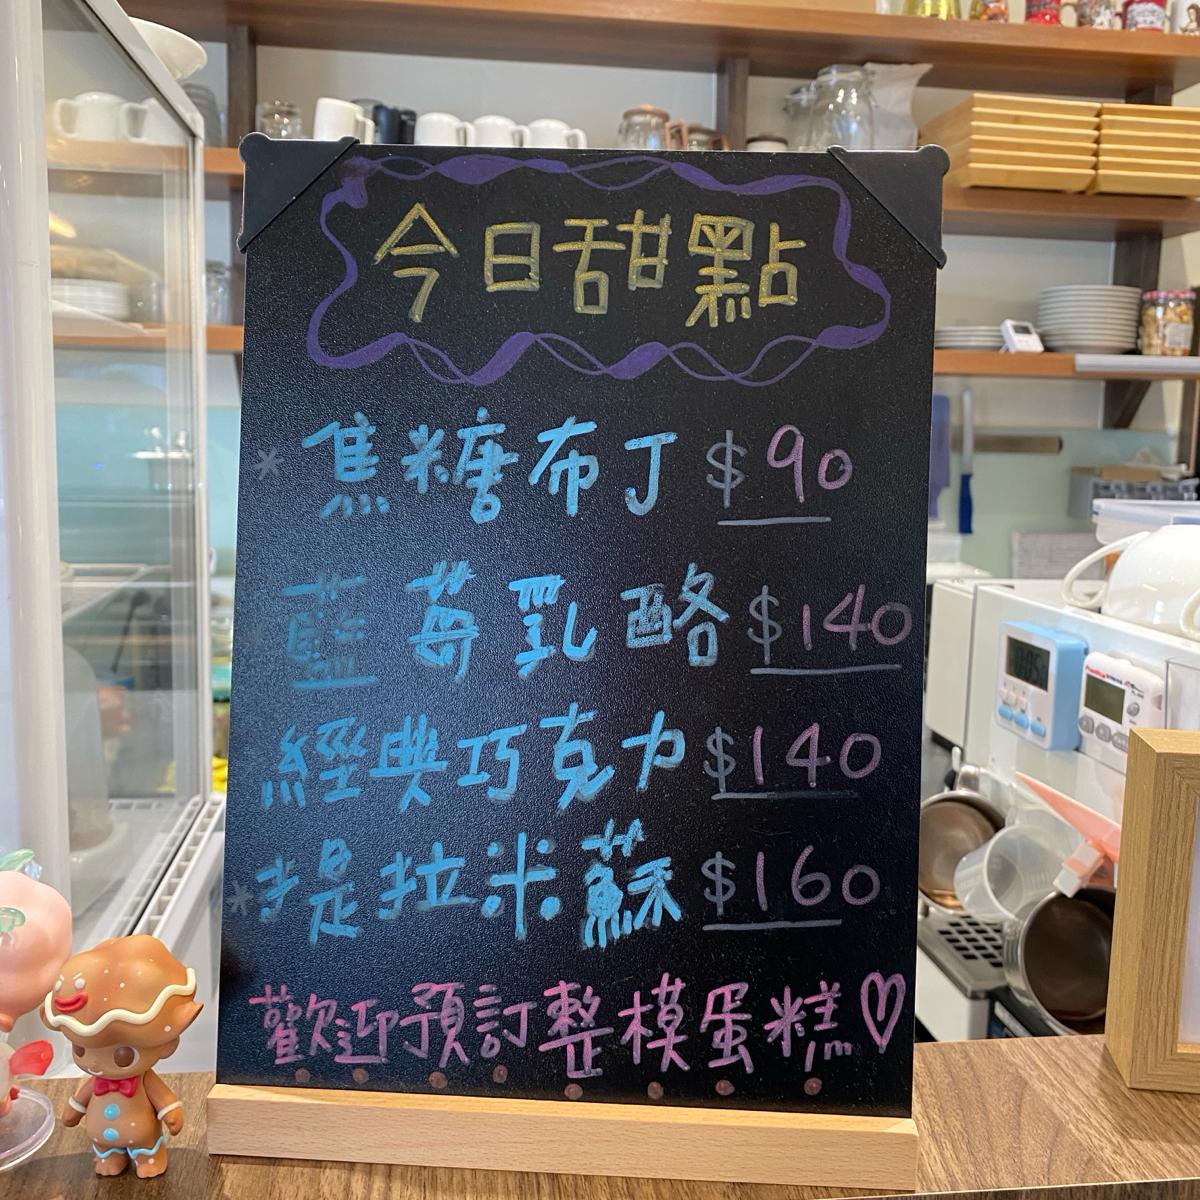 今日甜點
焦糖布丁 $90
藍莓乳酪 $140
經典巧克力 $140
提拉米蘇 $160
歡迎預訂整模蛋糕♡